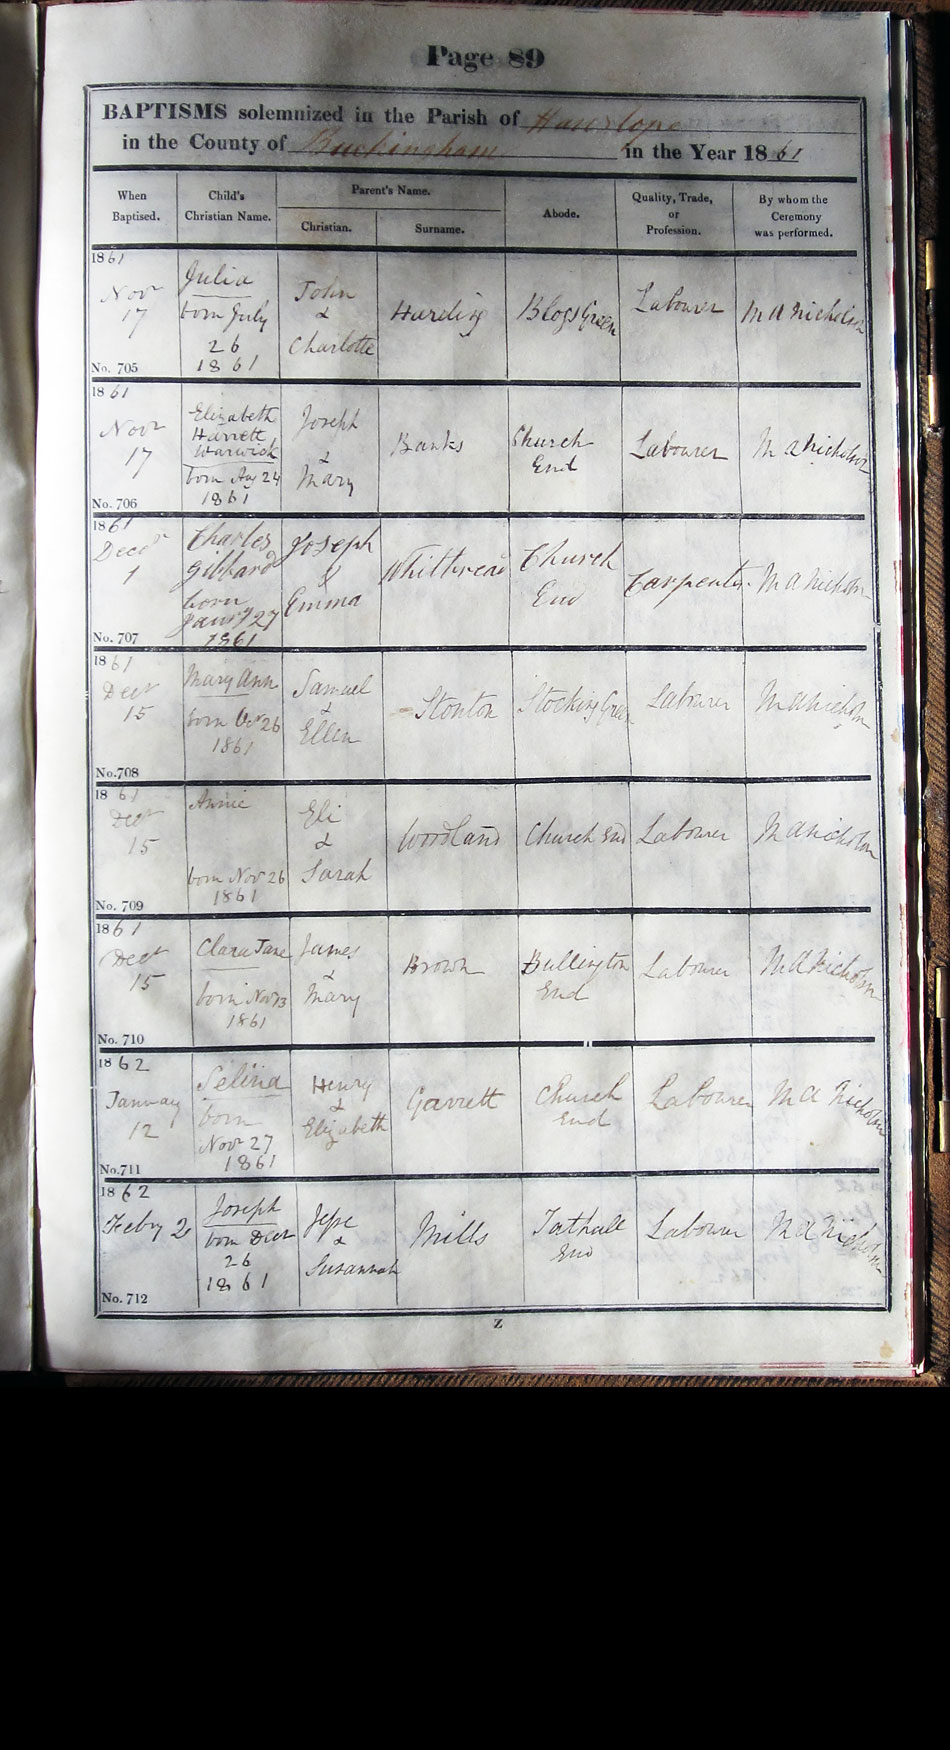 Page 89
BAPTISMS solemnized in the Parish of Hanslope
in the County of Buckingham in the Year 1861
When Baptised. Child's Christian Name. Parent's Name. Abode. Quality, Trade, or Profession. By whom the Ceremony was performed.
Christian. Surname.
1861
Novr 17
No. 705
Julia
born July
26
1861
John
&
Charlotte
Harding
Labourer
M A Nicholson
1861
Novr
17
No. 706
Elizabeth
Harrett
Warwick
born Aug 24
1861
Joseph
&
Mary
Banks
Church
End
Labourer
M A Nicholson
1861
Decr
1
No. 707
Charles
Gibbard
born
Jany 27
1861
Joseph
&
Emma
Whitbread
Church
End
Carpenter
M A Nicholson
1861
Decr
15
No. 708
Mary Ann
born Octr 26
1861
Samuel
&
Ellen
Stonton
Stocking Green
Labourer
M A Nicholson
1861
Decr
15
No. 709
Annie
born Novr 26
1861
Eli
&
Sarah
Woodland
Church End
Labourer
M A Nicholson
1861
Decr
15
No. 710
Clara Jane
born Novr 3
1861
James
&
Mary
Brown
Bullington
End
Labourer
M A Nicholson
1862
January
12
No. 711
Selina
born
Novr 27
1861
Henry
&
Elizabeth
Garrett
Church
End
Labourer
M A Nicholson
1862
Feby 2
No. 712
Joseph
born Decr
26
1861
Jesse
&
Susannah
Mills
Tathall
End
Labourer
M A Nicholson
Z